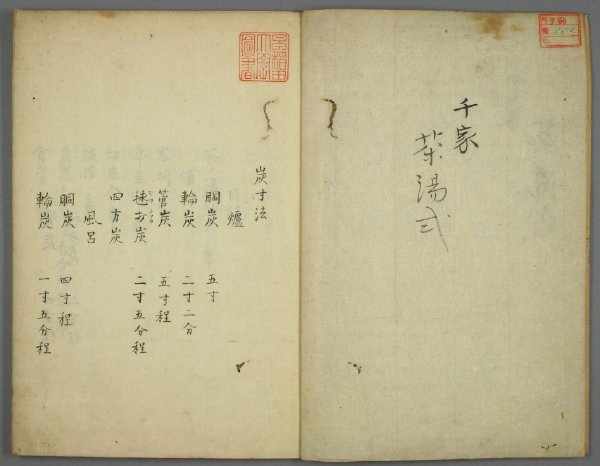 千家
茶湯式
炭寸法
爐
胴炭 五寸
輪炭 二寸二分
管炭 五寸程
二寸五分程
四方炭
風呂
胴炭 四寸程
輪炭 一寸五分程